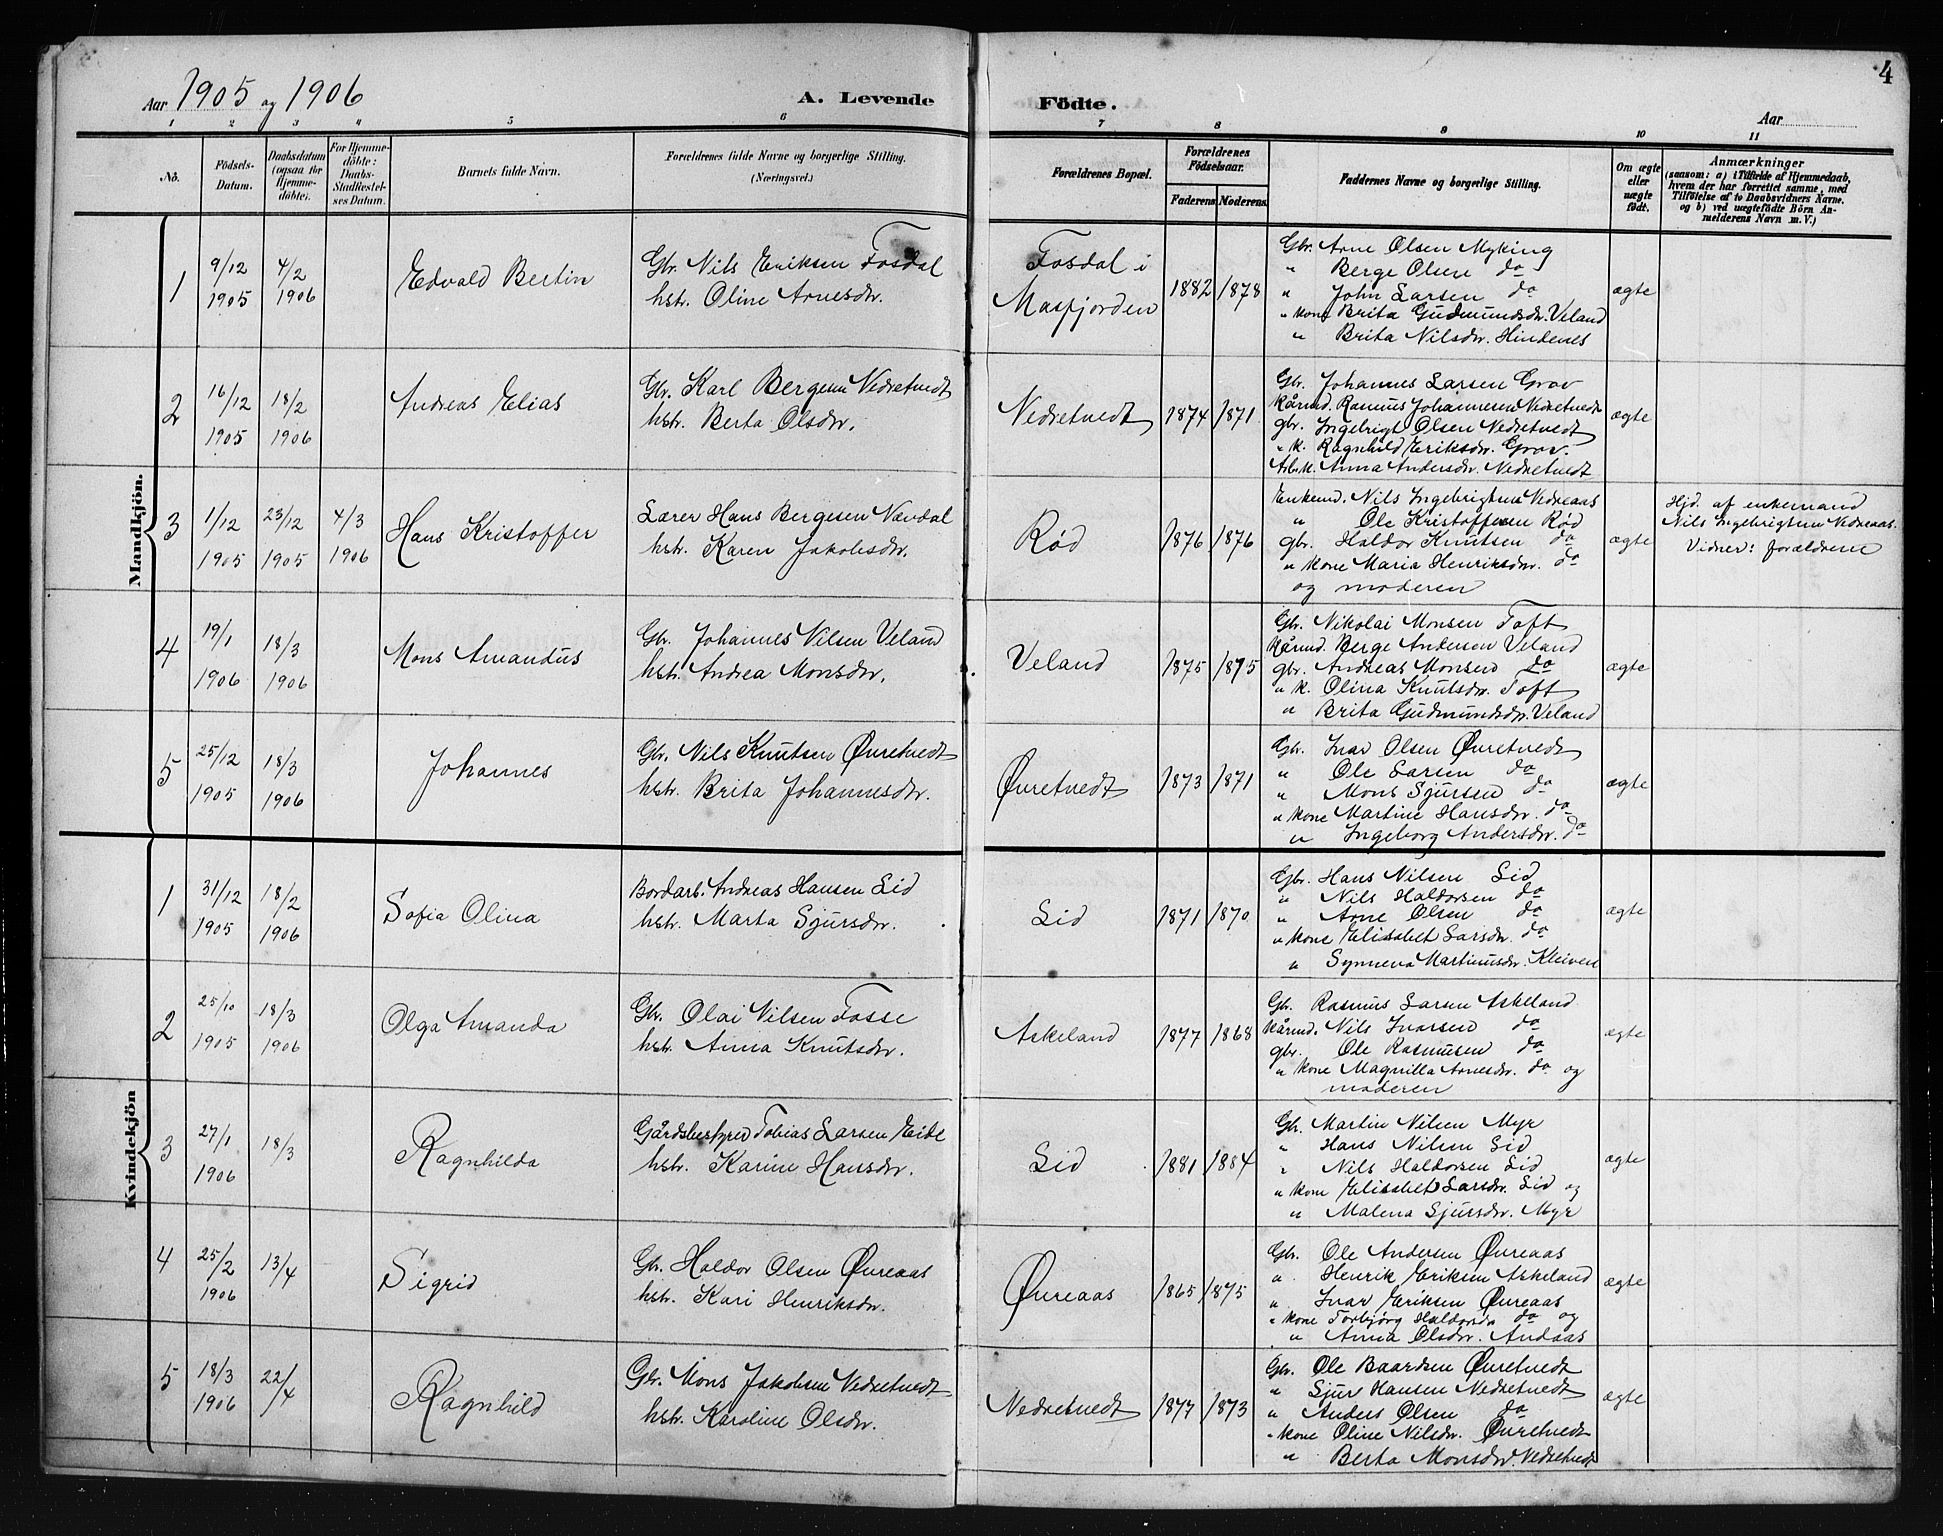 4
Aar 1905 og 1906 A. Levende Födte. Aar
1 2 3 4 5 6 7 8 9 10 11
No. Födsels-Datum. Daabsdatum (ogsaa for Hjemme-döbte). For Hjemme-döbte: Daabs-Stadfæstel-ses Datum. Barnets fulde Navn. Forældrenes fulde Navne og borgerlige Stilling. (Næringsvei.) Forældrenes Bopæl. Forældrenes Födselsaar. Faderens Moderens. Faddernes Navne og borgerlige Stilling. Om ægte eller uægte födt. Anmærkninger
(saasom: a) i Tilfælde af Hjemmedaab,
hvem der har forrettet samme, med
Tilföielse af to Daabsvidners Navne.
og b) ved uægtefödte Börn An-
melderens Navn m. V.)
Mandkjön.
1 9/12 1905 4/2 1906 Edvald Bertin
Gbr. Nils Eriksen Fosdal
hstr. Oline Arnesdtr.
Fosdal i
Masfjorden
1882 1878
Gbr. Arne Olsen Myking
" Berge Olsen do
" John Larsen do
" kone Brita Gudmundsdtr. Veland
" Brita Nilsdtr. Hindenes
ægte
2 16/12 1905 18/2 1906 Andreas Elias
Gbr. Karl Bergesen Nedretvedt
hstr. Berta Olsdtr.
Nedretvedt 1874 1871
Gbr. Johannes Larsen Grov
kårmd. Rasmus Johannesen Nedretvedt
gbr. Ingebrigt Olsen Nedretvedt
" k. Ragnhild Eriksdtr. Grov.
Arb.k. Anna Andersdtr. Nedretvedt
ægte
3 1/12 1905 23/12 1905 4/3 1906 Hans Kristoffer
Lærer Hans Bergesen Nævdal
hstr. Karen Jakobsdtr.
Rød 1876 1876
Enkemd. Nils Ingebrigtsen Nedreaas
" Ole Kristoffersen Rød
gbr. Haldor Knutsen do
" kone Maria Henriksdtr. do
og moderen
ægte
Hjd. af enkemand
Nils Ingebrigtsen Nedreaas.
Vidner: forældrene
4 19/1 1906 18/3 1906 Mons Amandus
Gbr. Johannes Nilsen Veland
hstr. Andrea Monsdtr.
Veland 1875 1875
Gbr. Nikolai Monsen Toft
Kårmd. Berge Andersen Veland
gbr. Andreas Monsen do
" k. Olina Knutsdtr. Toft
" Brita Gudmundsdtr. Veland
ægte
5 25/12 1905 18/3 1906 Johannes
Gbr. Nils Knutsen Øvretvedt
hstr. Brita Johannesdtr.
Øvretvedt 1873 1871
Gbr. Ivar Olsen Øvretvedt
" Ole Larsen do
" Mons Sjursen do
" kone Martine Hansdtr. do
" Ingeborg Andersdtr. do
ægte
Kvindekjön
1 31/12 1905 18/2 1906 Sofia Olina
Bordarb. Andreas Hansen Lid
hstr. Marta Sjursdtr.
Lid 1871 1870
Gbr. Hans Nilsen Lid
" Nils Haldorsen do
" Arne Olsen do
" kone Elisabet Larsdtr. do
" Synneva Martinusdtr. Kleiven
ægte
2 25/10 1905 18/3 1906 Olga Amanda
Gbr. Olai Nilsen Fosse
hstr. Anna Knutsdtr.
Askeland 1877 1868
Gbr. Rasmus Larsen Askeland
kårmd. Nils Ivarsen do
gbr. Ole Rasmusen do
" kone Magnilla Arnesdtr. do og
moderen
ægte
3 27/1 1906 18/3 Ragnhilda
Gårdsbestyrer Tobias Larsen Eide
hstr. Karine Hansdtr.
Lid 1881 1884
Gbr. Martin Nilsen Myr
" Hans Nilsen Lid
" Nils Haldorsen Lid
" kone Elisabet Larsdtr. Lid og
" Malena Sjursdtr. Myr
ægte
4 25/2 1906 13/4 Sigrid
Gbr. Haldor Olsen Øvreaas
hstr. Kari Henriksdtr.
Øvreaas 1865 1875
Gbr. Ole Andersen Øvreaas
" Henrik Eriksen Askeland
" Ivar Eriksen Øvreaas
" kone Torbjørg Haldorsdtr do og
" Anna Olsdtr. Andaas
ægte
5 18/3 1906 22/4 Ragnhild
Gbr. Mons Jakobsen Nedretvedt
hstr. Karoline Olsdtr.
Nedretvedt 1877 1873
Gbr. Ole Baardsen Øvretvedt
" Sjur Hansen Nedretvedt
" Anders Olsen do
" kone Oline Nilsdtr. Øvretvedt
" Berta Monsdtr. Nedretvedt
ægte